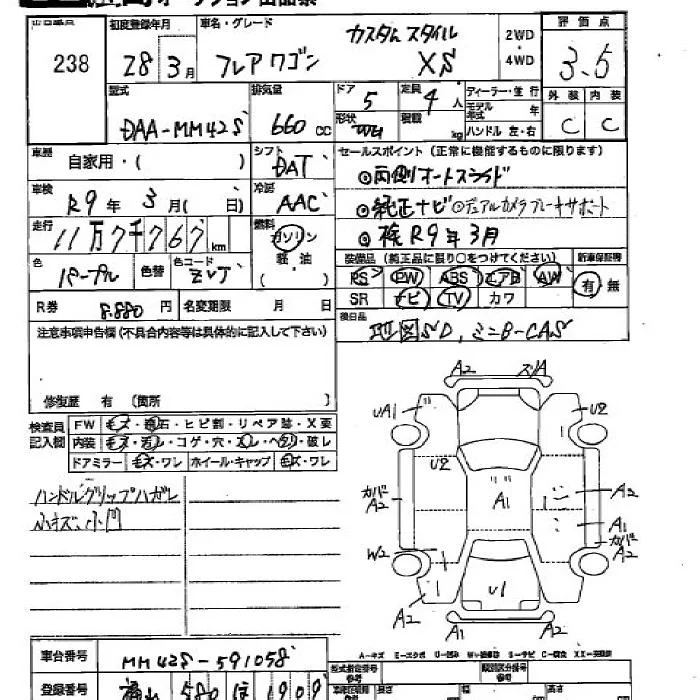 オークション出品票
出品番号 初度登録年月 車名・グレード 評価点
238 28年3月 フレアワゴン カスタムスタイル XS 2WD・4WD 3.5
型式 排気量 ドア 定員 ディーラー・並行 外装 内装
DAA-MM42S 660cc 5 4人 モデル年式 年 C C
形状 積載 kg ハンドル 左・右
車歴 自家用・( ) シフト DAT セールスポイント(正常に機能するものに限ります)
◎両側オートスライド
車検 R9年3月( 日) 冷房 AAC ◎純正ナビ◎デュアルカメラブレーキサポート
走行 11万7千767km 燃料 ガソリン 軽油 ( ) ◎検R9年3月
色 パープル 色替 色コード ZVJ 装備品(純正品に限り○をつけてください) 新車保証書
PS PW ABS エアB AW 有・無
R券 8.880円 名変期限 月 日 SR ナビ TV カワ
注意事項申告欄(不具合内容等は具体的に記入して下さい) 後日品 地図SD,ミニB-CAS
修復歴 有 (箇所 )
検査員記入欄 FW キズ・飛石・ヒビ割・リペア跡・X要
内装 キズ・汚レ・コゲ・穴・スレ・ヘタリ・破レ
ドアミラー キズ・ワレ ホイール・キャップ キズ・ワレ
ハンドルグリップハガレ
小キズ、小凹
A2 スリA
UA1 U2
U2
カバA2 A1 A2
A1
カバA2
W2
U1
A2 A2
A1 A2
A=キズ E=エクボ U=凹み W=補修跡 S=サビ C=腐食 XX=交換済
車台番号 MM42S-591058 型式指定番号 参考 類別区分番号 参考
登録番号 580 ほ 1909